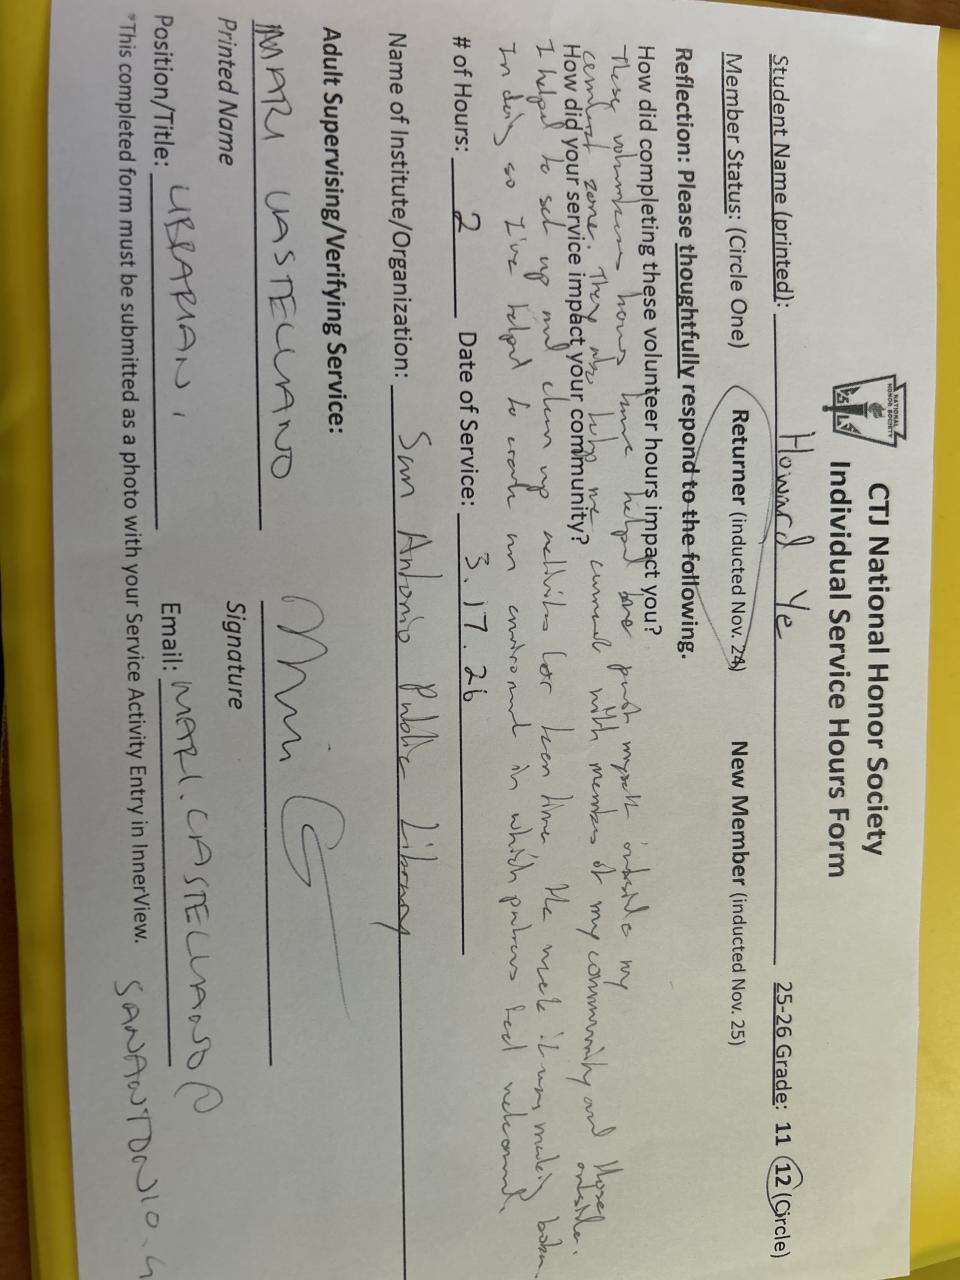 NATIONAL HONOR SOCIETY
CTJ National Honor Society
Individual Service Hours Form
Student Name (printted): Howard Ye 25-26 Grade: 11 12 (Circle)
Member Status: (Circle One) Returner (inducted Nov. 24) New Member (inducted Nov. 25)
Reflection: Please thoughtfully respond to the following.
How did completing these volunteer hours impact you?
These volunteers hours have helped me push myself outside my
comfort zone. They also help me connect with members of my community and those outside.
How did your service impact your community?
I helped to set up and clean up activities for teen time the week it was
In doing so I've helped to create an enviroment in which patrons feel welcomed.
# of Hours: 2 Date of Service: 3.17.26
Name of Institute/Organization: San Antonio Public Library
Adult Supervising/Verifying Service:
MARI CASTELLANO
Printed Name Signature
Position/Title: LIBRARIAN I Email: MARI.CASTELLANO@
SANANTONIO.G
*This completed form must be submitted as a photo with your Service Activity Entry in InnerView.